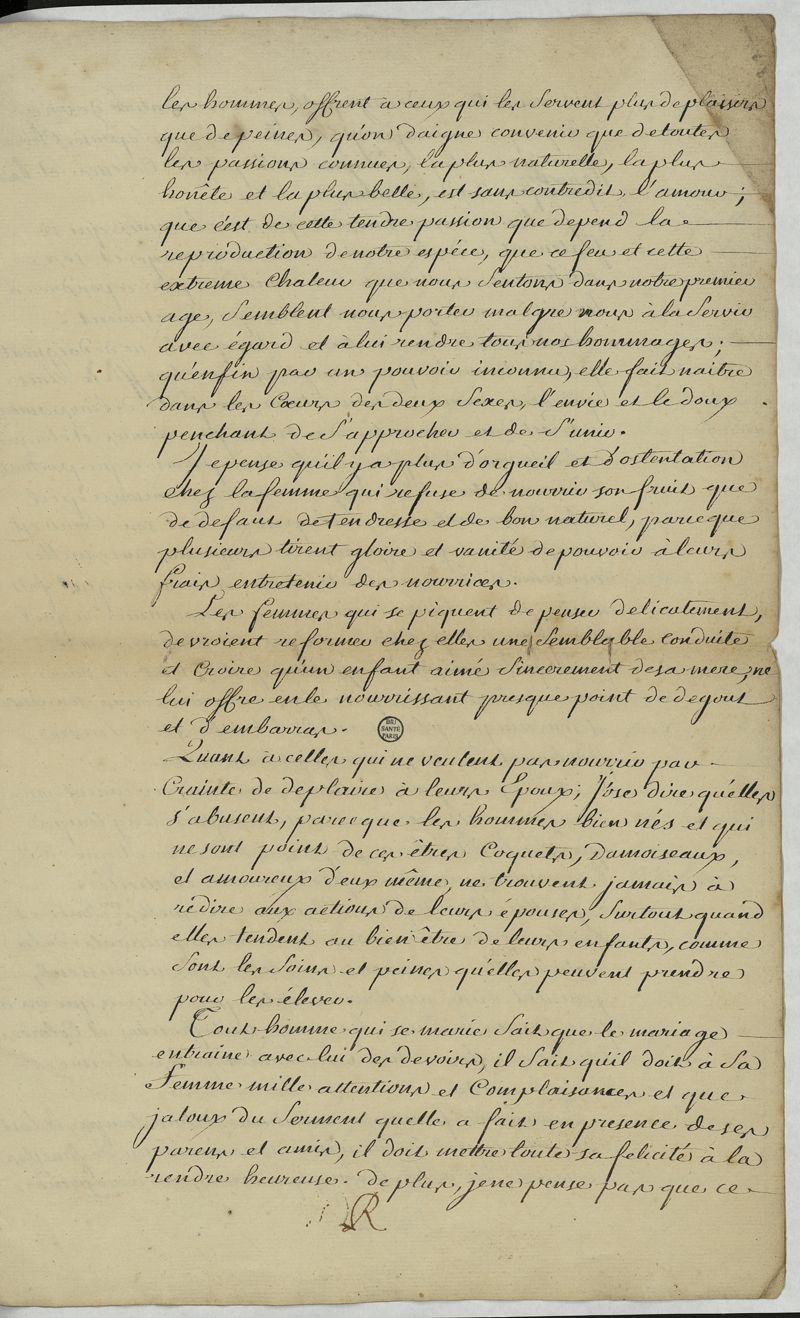 les hommes, offrent à ceux qui les servent plus de plaisirs
que de peines, qu'on daigne convenir que de toutes
les passions connues, la plus naturelle, la plus
honête et la plus belle, est sans contredit, l'amour ;
que c'est de cette tendre passion que depend la
reproduction de notre espéce, que ce feu et cette
extreme Chaleur que nous sentons dans notre premier
age, semblent nous porter malgre nous à la servir
avec égard et à lui rendre tous nos hommages ;
qu'enfin par un pouvoir inconnu, elle fait naitre
dans les Cœurs des deux sexes, l'envie et le doux
penchant de s'approcher et de s'unir.
Je pense qu'il y a plus d'orgueil et d'ostentation
chez la femme qui refuse de nourrir son fruit que
de defaut de tendresse et de bon naturel, parceque
plusieurs tirent gloire et vanité de pouvoir à leurs
frais entretenir des nourrices.
Les femmes qui se piquent de penser delicatement,
devroient reformer chez elles une semblable conduite
et Croire qu'un enfant aimé sincerement de sa mere, ne
lui offre en le nourrissant presque point de degout
et d'embarras.
BIU
SANTE
PARIS
Quant à celles qui ne veulent pas nourrir par
Crainte de deplaire à leurs Epoux, J'ose dire qu'elles
s'abusent, parceque les hommes bien nés et qui
ne sont point de ces êtres Coquets, Damoiseaux,
et amoureux d'eux même, ne trouvent jamais à
rédire aux actions de leurs épouses, surtout quand
elles tendent au bien être de leurs enfants, comme
sont les soins et peines qu'elles peuvent prendre
pour les élever.
Tout homme qui se marie sait que le mariage
entraine avec lui des devoirs, il sait qu'il doit à sa
Femme mille attentions et Complaisances et que
jaloux du serment quelle a fait en presence de ses
parens et amis, il doit mettre toute sa felicité à la
rendre heureuse. de plus, je ne pense pas que ce
R